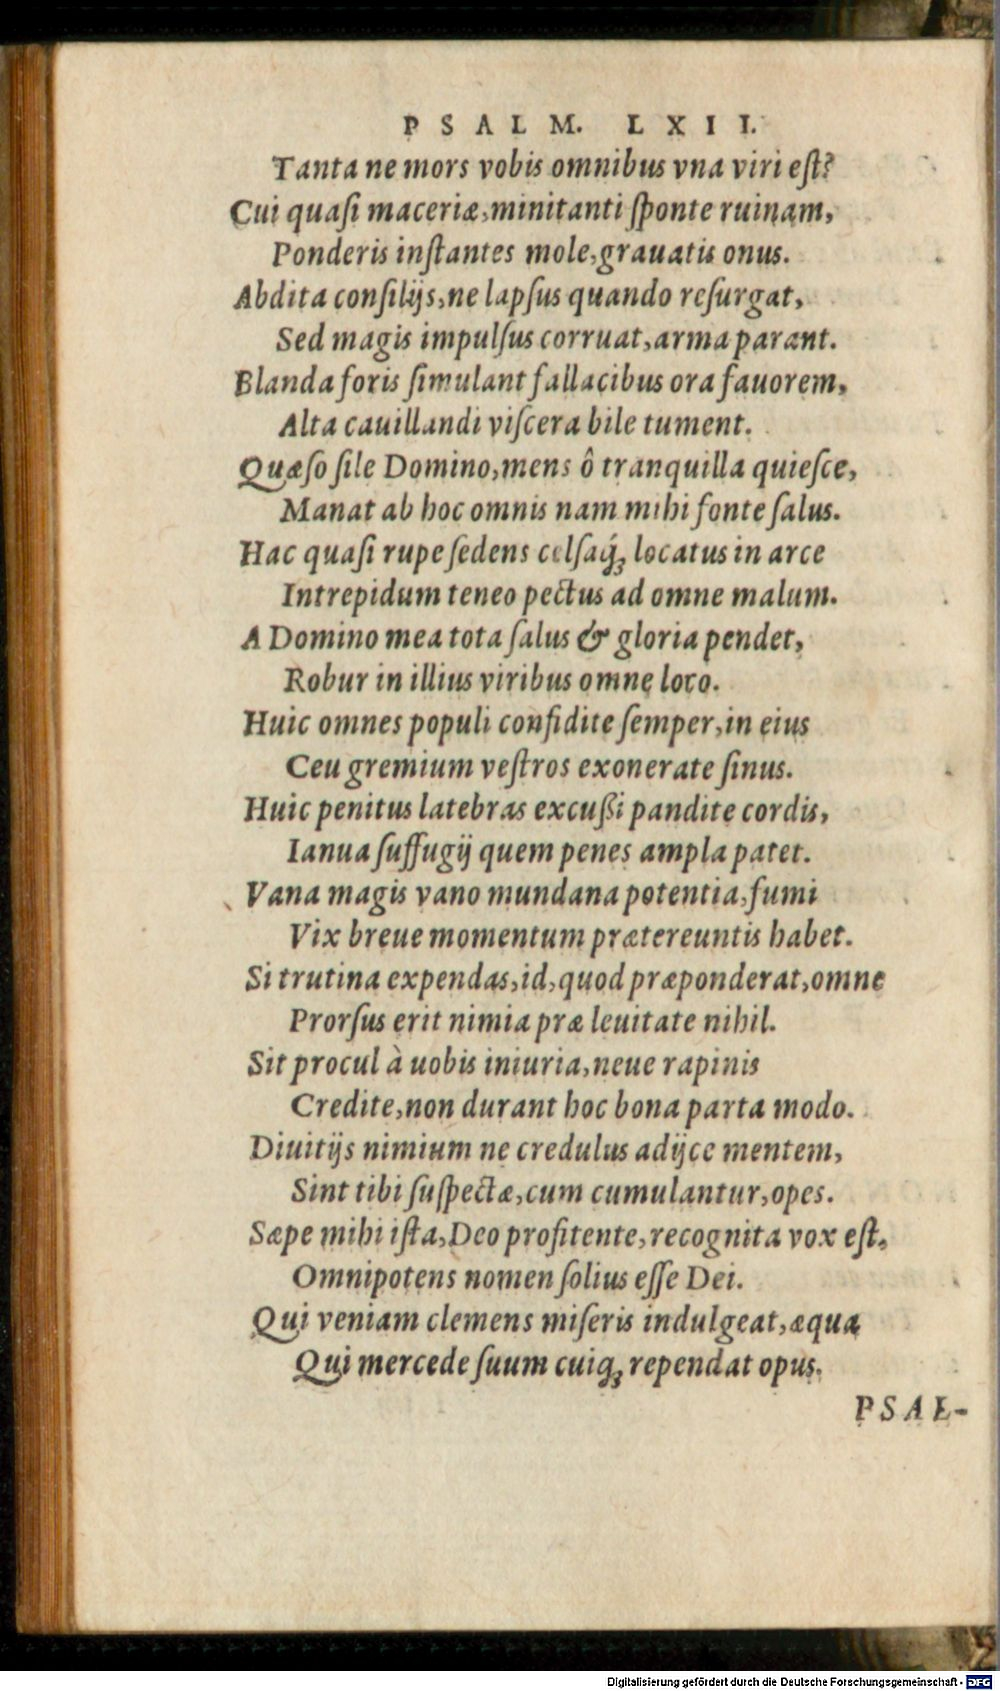 PSALM. LXII.
Tanta ne mors vobis omnibus vna viri eſt?
Cui quaſi maceriæ, minitanti ſponte ruinam,
Ponderis inſtantes mole, grauatis onus.
Abdita conſilijs, ne lapſus quando reſurgat,
Sed magis impulſus corruat, arma parant.
Blanda foris ſimulant fallacibus ora fauorem,
Alta cauillandi viſcera bile tument.
Quæſo ſile Domino, mens ô tranquilla quieſce,
Manat ab hoc omnis nam mihi fonte ſalus.
Hac quaſi rupe ſedens celſaq́ꝫ locatus in arce
Intrepidum teneo pectus ad omne malum.
A Domino mea tota ſalus & gloria pendet,
Robur in illius viribus omne loco.
Huic omnes populi confidite ſemper, in eius
Ceu gremium veſtros exonerate ſinus.
Huic penitus latebras excußi pandite cordis,
Ianua ſuffugij quem penes ampla patet.
Vana magis vano mundana potentia, fumi
Vix breue momentum prætereuntis habet.
Si trutina expendas, id, quod præponderat, omne
Prorſus erit nimia præ leuitate nihil.
Sit procul à uobis iniuria, neue rapinis
Credite, non durant hoc bona parta modo.
Diuitijs nimium ne credulus adijce mentem,
Sint tibi ſuſpectæ, cum cumulantur, opes.
Sæpe mihi iſta, Deo profitente, recognita vox eſt,
Omnipotens nomen ſolius eſſe Dei.
Qui veniam clemens miſeris indulgeat, æqua
Qui mercede ſuum cuiqꝫ rependat opus.
PSAL-
Digitalisierung gefördert durch die Deutsche Forschungsgemeinschaft - DFG